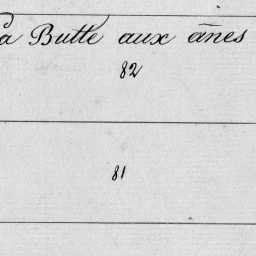 La Butte aux ānes
82
81